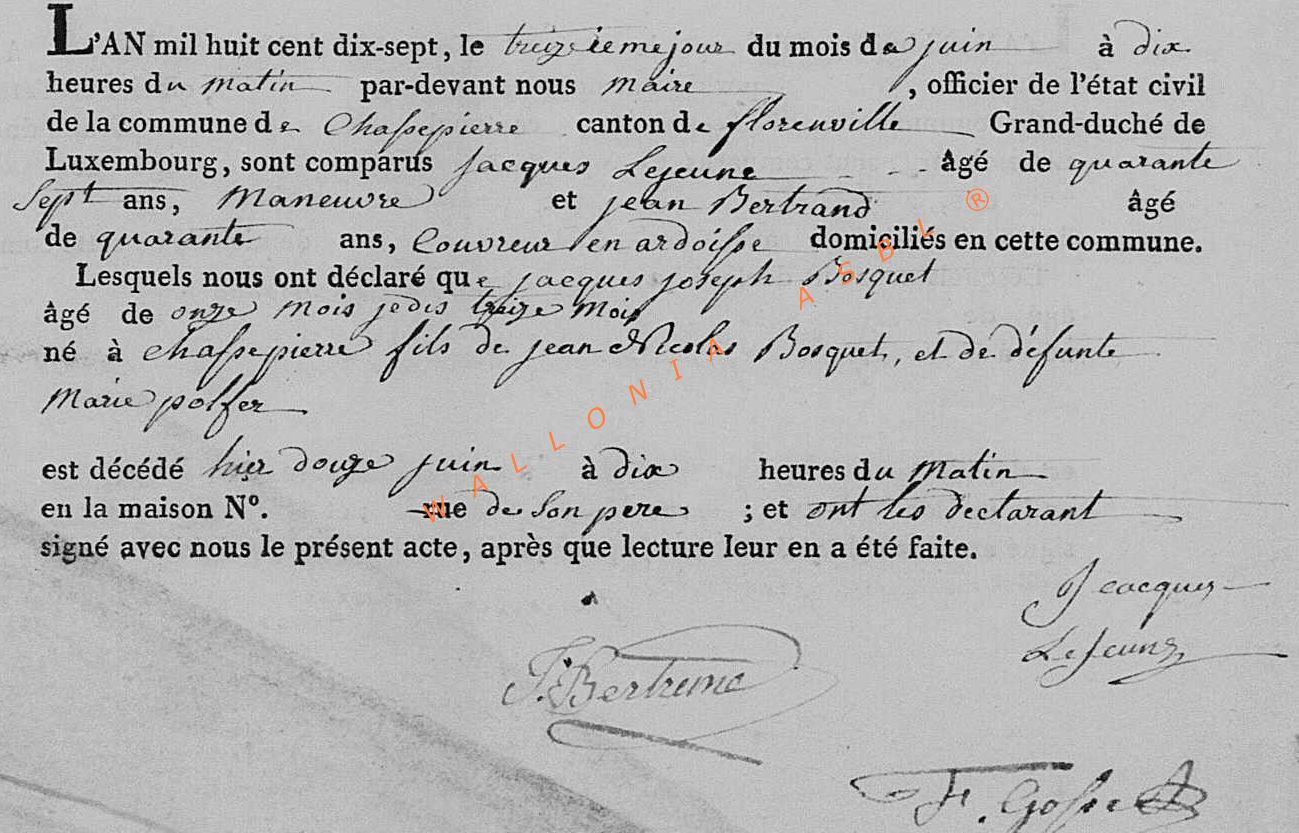 L'AN mil huit cent dix-sept, le treizieme jour du mois de juin à dix
heures du matin par-devant nous maire , officier de l'état civil
de la commune de Chassepierre canton de florenville Grand-duché de
Luxembourg, sont comparus jacques Lejeune âgé de quarante
sept ans, Maneuvre et jean Bertrand âgé
de quarante ans, couvreur en ardoisse domiciliés en cette commune.
Lesquels nous ont déclaré que jacques joseph Bosquet
âgé de onze mois jedis treize mois
né à chassepierre fils de jean Nicolas Bosquet, et de défunte
Marie polfer
est décédé hier douze juin à dix heures du Matin
en la maison N°. rue de son pere ; et ont les declarant
signé avec nous le présent acte, après que lecture leur en a été faite.
Jeacques
LeJeune
J. Bertrand
F. Gosset
WALLONIA ASBL ®